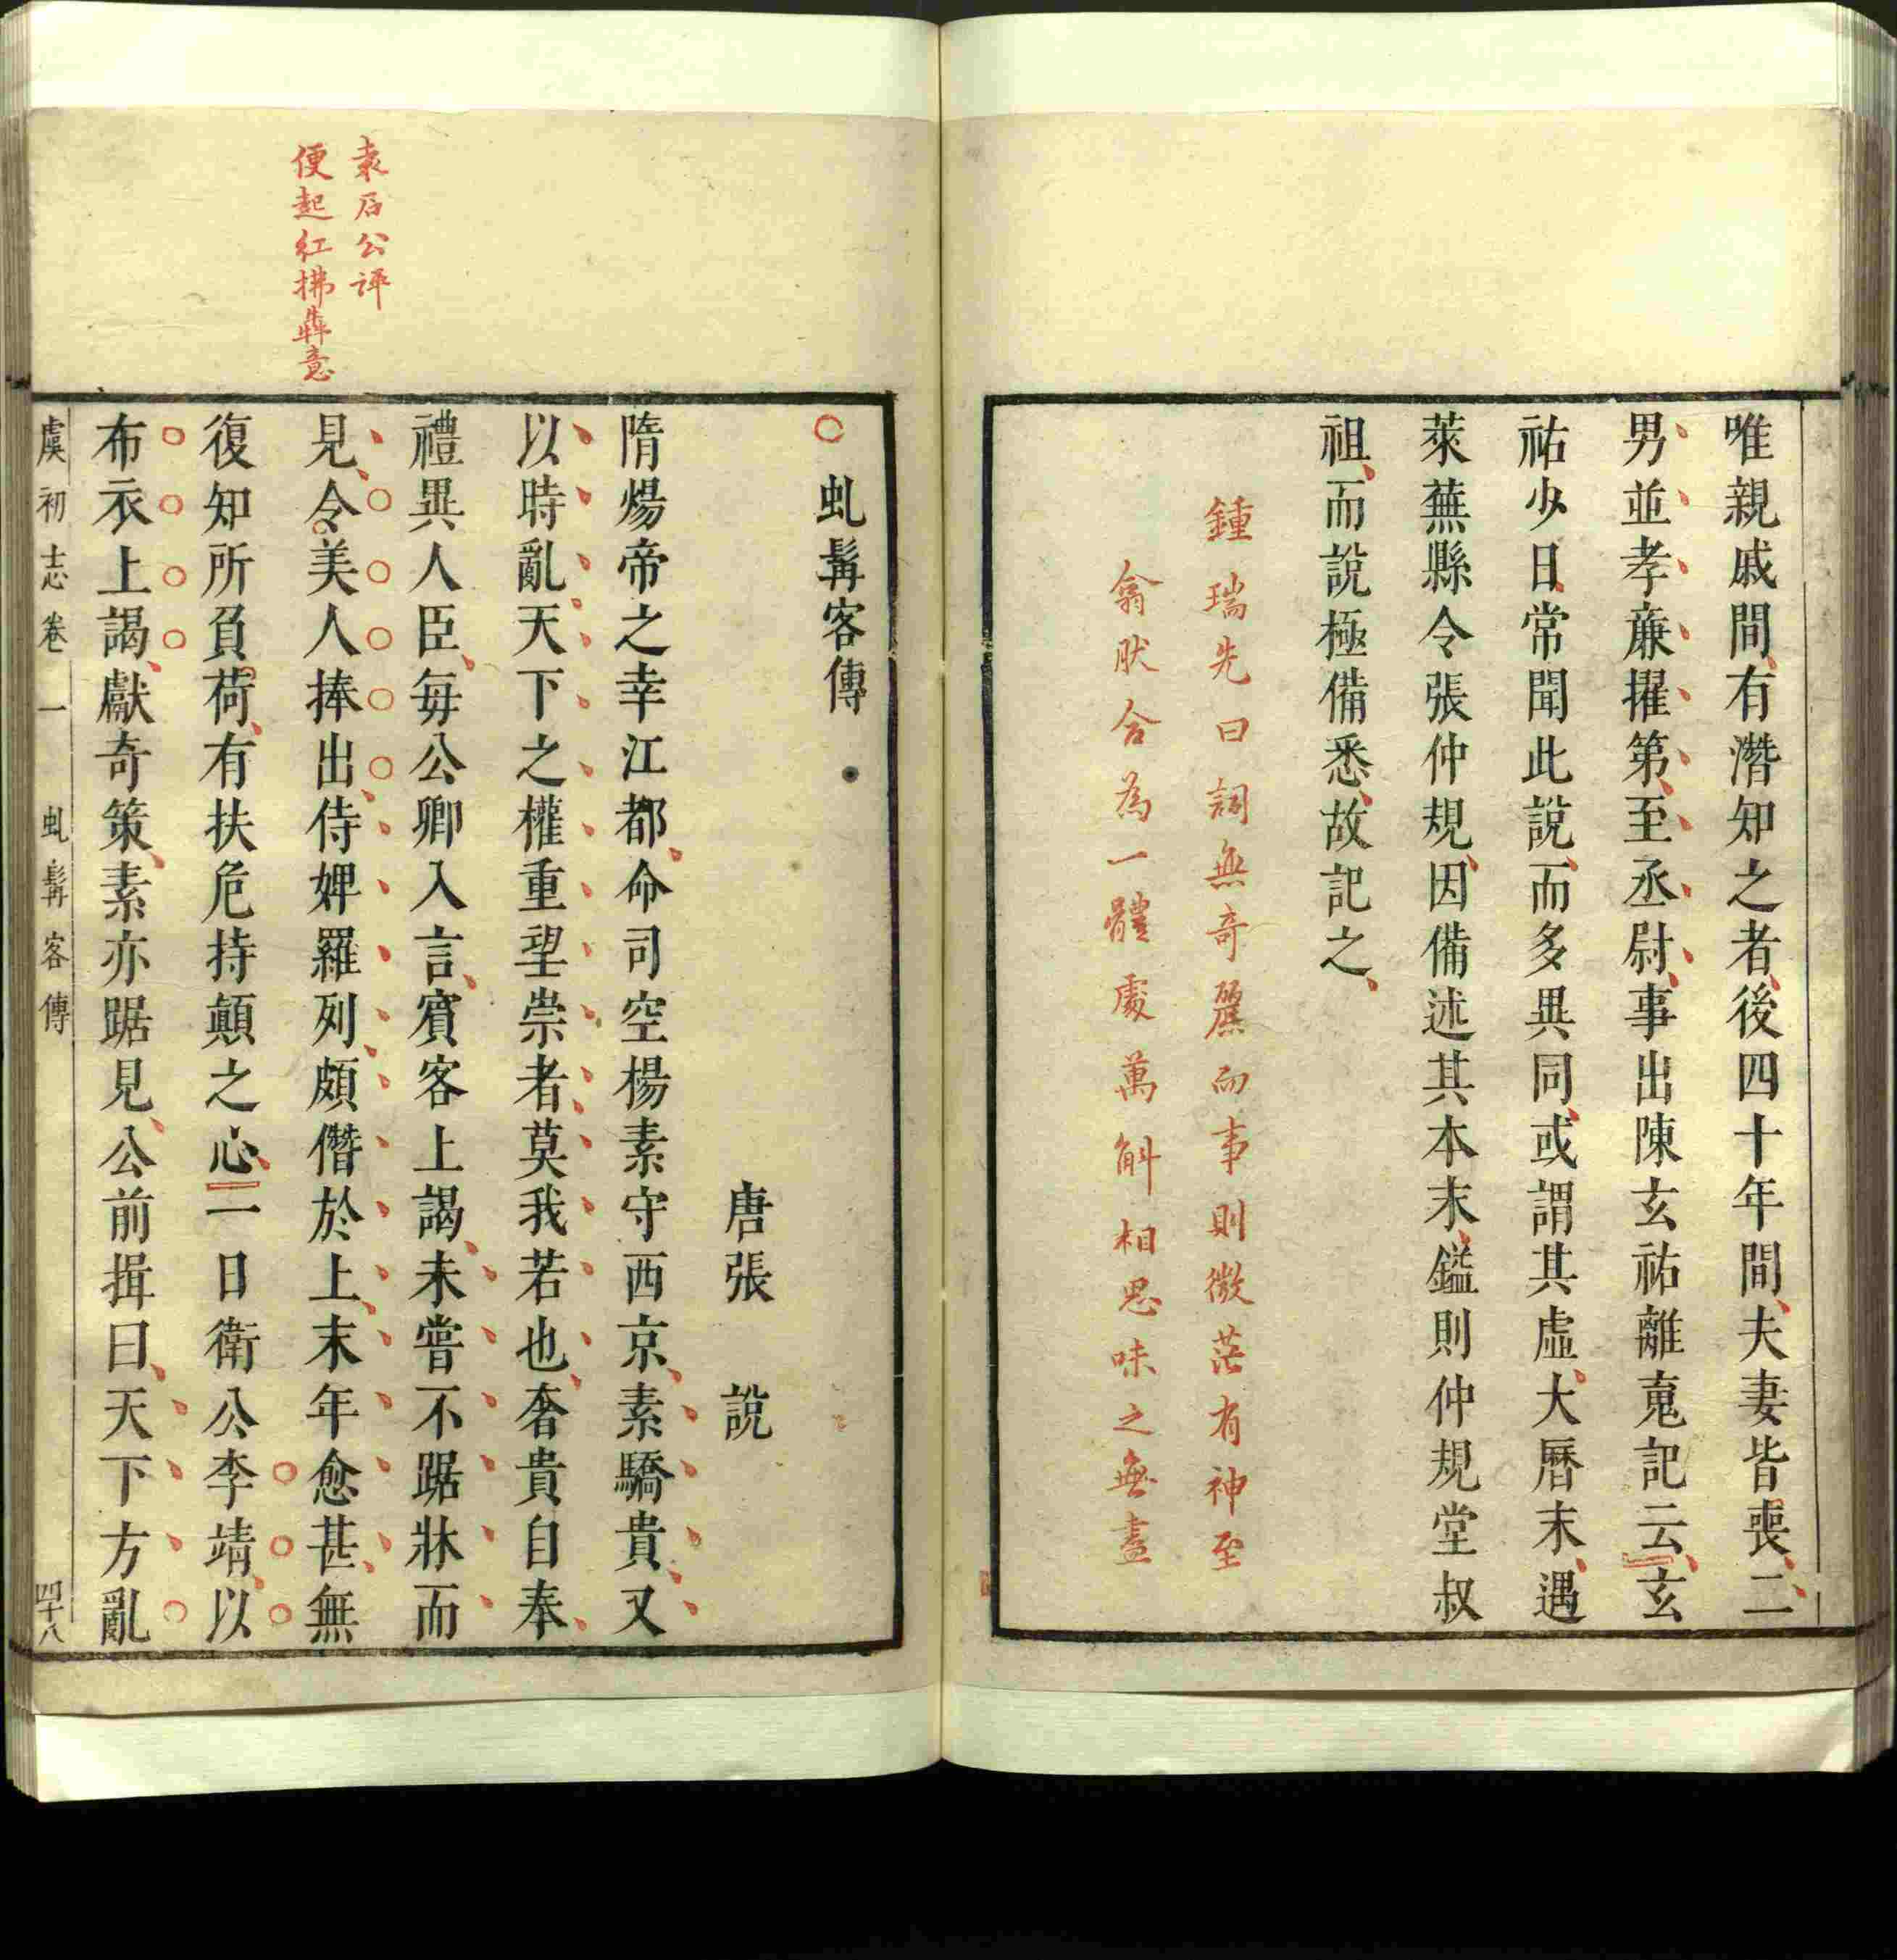 唯親戚間、有潛知之者、後四十年間、夫妻皆喪、二
男並孝亷擢第、至丞尉、事出陳玄祐離䰟記云、玄
祐少日常聞此說、而多異同、或謂其虛、大曆末、遇
萊蕪縣令張仲規、因備述其本末、鎰則仲規堂叔
祖、而說極備悉、故記之、
鍾瑞先曰詞無奇麗而事則微茫有神至
翕肰合為一體處萬斛相思味之無盡
袁石公評
便起紅拂犇意
虬髯客傳
唐張說
隋煬帝之幸江都、命司空楊素守西京、素驕貴、又
以時亂、天下之權重望崇者、莫我若也、奢貴自奉、
禮異人臣、每公卿入言、賓客上謁、未嘗不踞牀而
見、令美人捧出、侍婢羅列、頗僭於上、末年愈甚、無
復知所負荷、有扶危持顛之心、一日衛公李靖、以
布衣上謁、獻奇策、素亦踞見、公前揖曰、天下方亂
虞初志卷一 虬髯客傳 四十八